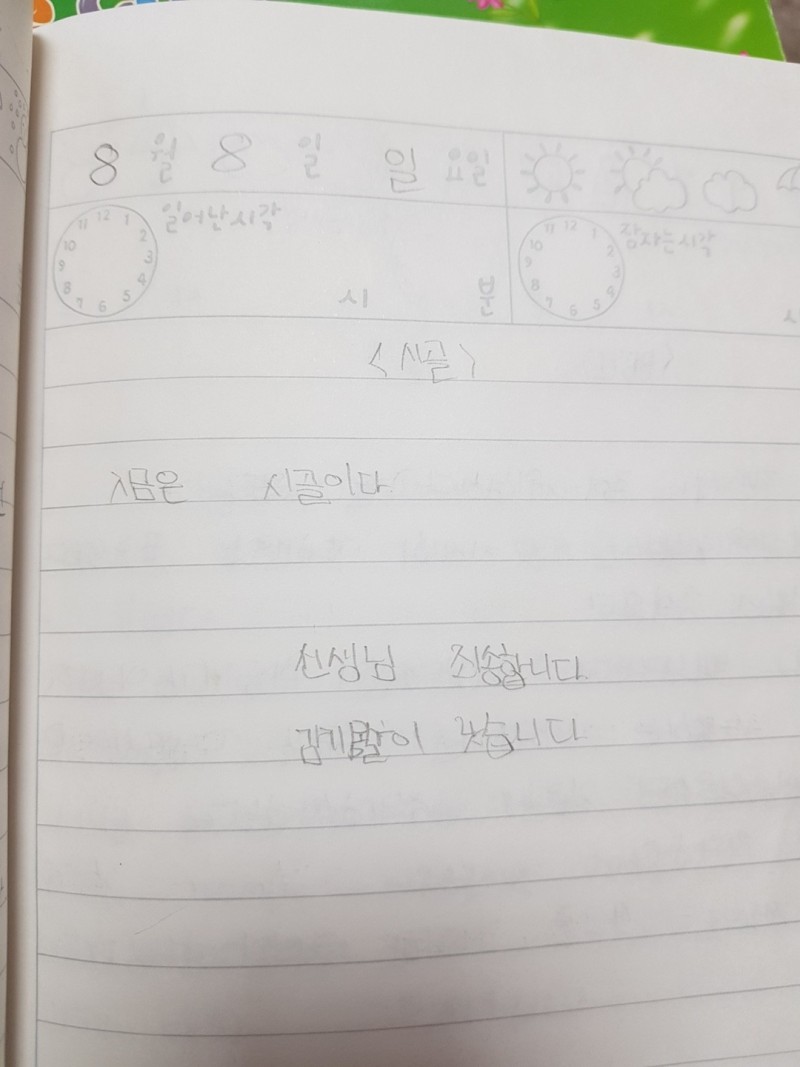 8 월 8 일 일 요일
11 12 1 2 3 4 5 6 7 8 9 10 일어난 시각 시 분
11 12 1 2 3 4 5 6 7 8 9 10 잠자는 시각 시
<시골>
지금은 시골이다
선생님 죄송합니다
감기 이 낫습니다